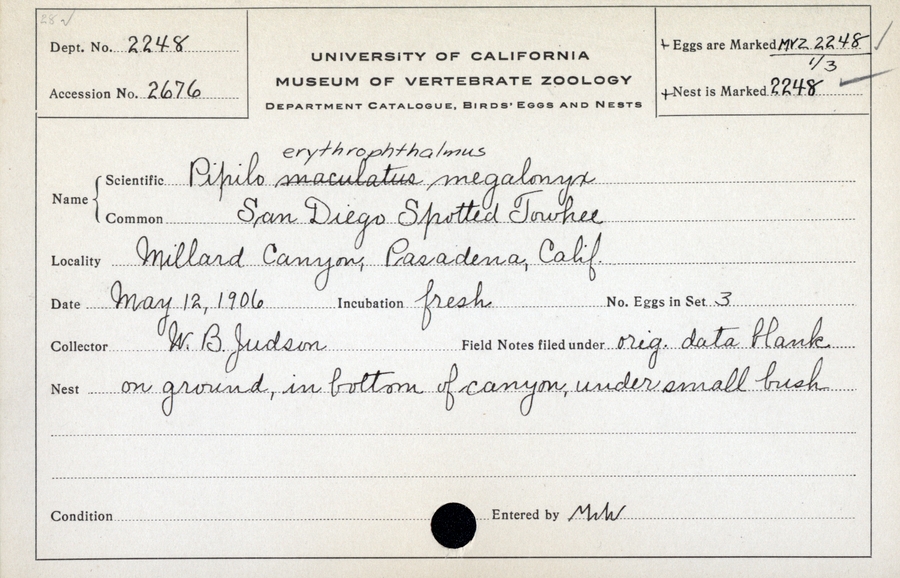 28 ✓
Dept. No. 2248
Accession No. 2676
UNIVERSITY OF CALIFORNIA
MUSEUM OF VERTEBRATE ZOOLOGY
DEPARTMENT CATALOGUE, BIRDS' EGGS AND NESTS
+ Eggs are Marked MVZ 2248 ✓
1/3
+ Nest is Marked 2248 ✓
erythrophthalmus
Name { Scientific Pipilo ~~maculatus~~ megalonyx
Common San Diego Spotted Towhee
Locality Millard Canyon, Pasadena, Calif.
Date May 12, 1906 Incubation fresh No. Eggs in Set 3
Collector W. B. Judson Field Notes filed under orig. data blank
Nest on ground, in bottom of canyon, under small bush
Condition Entered by